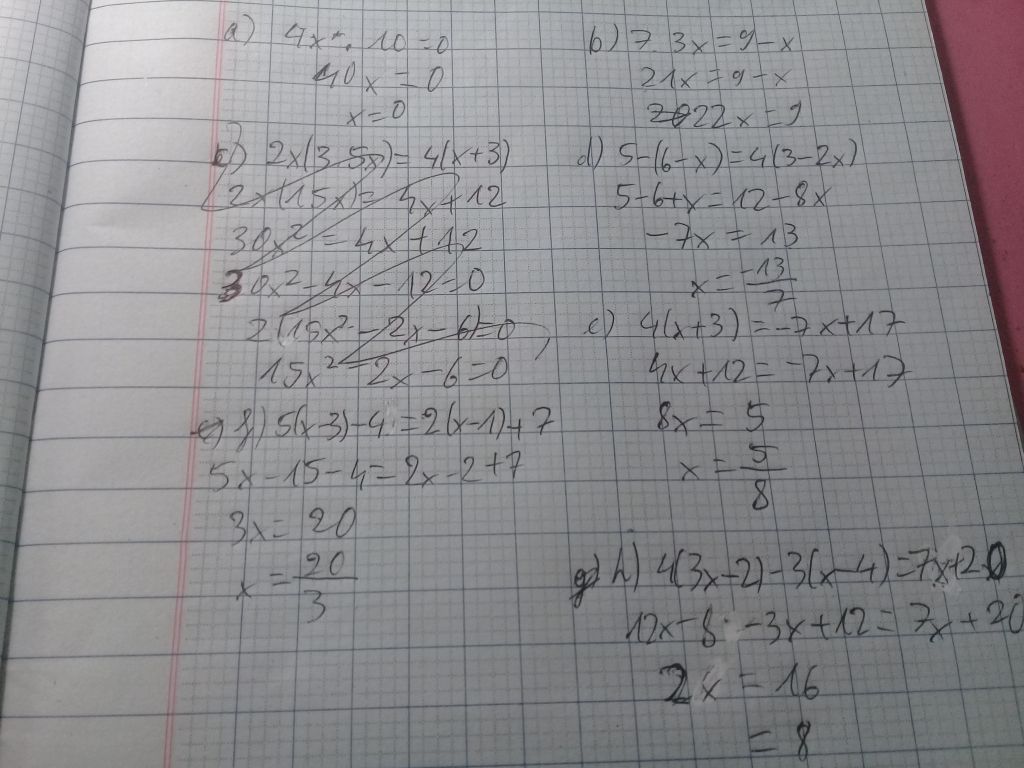 a) 4x · 10 = 0
40x = 0
x = 0
b) 7 3x = 9 - x
21x = 9 - x
22x = 9
c) 2x(3-5x) = 4(x+3)
2x(15x) = 4x + 12
30x² = 4x + 12
30x² - 4x - 12 = 0
2(15x² - 2x - 6) = 0
15x² - 2x - 6 = 0
d) 5-(6-x) = 4(3-2x)
5-6+x = 12-8x
-7x = 13
x = -13/7
e) 4(x+3) = -7x+17
4x+12 = -7x+17
8x = 5
x = 5/8
f) 5(x-3)-4 = 2(x-1)+7
5x-15-4 = 2x-2+7
3x = 20
x = 20/3
h) 4(3x-2)-3(x-4) = 7x+20
12x-8 -3x+12 = 7x+20
2x = 16
= 8